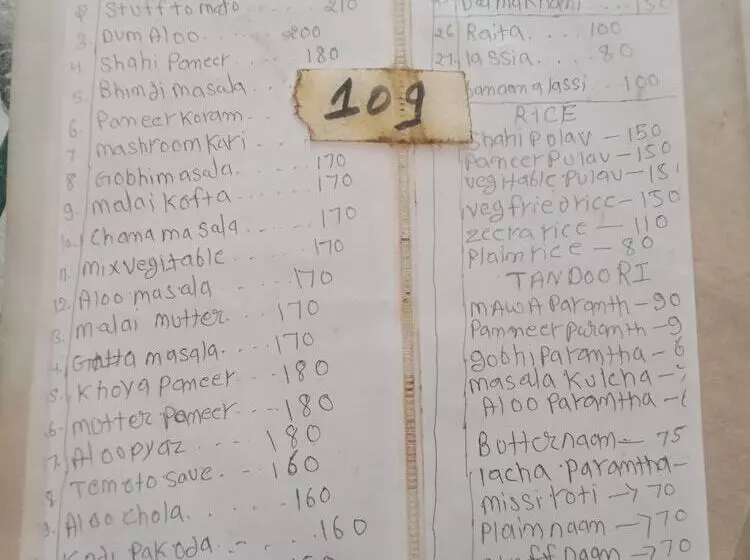 Stuff to mato .... 210
3 Dum Aloo .... 200
4 Shahi Pameer .... 180
5 Bhimdi masala ...
6. Pameer Koram ....
7 mashroom Kari
8 Gobhi masala. .... 170
9. malai Kofta .... 170
10. Chama masala .... 170
11. mix vegitable .... 170
12. Aloo masala .... 170
3. malai mutter .... 170
4. Gatta masala. ... 170
5. Khoya Pameer .... 180
6. mutter Pameer ... 180
7. Aloo pyaz .... 180
8 Temoto save .... 160
9. Aloo chola. .... 160
Kadi Pakoda .... 160
109
26 Raita .... 100
27. lassia .... 80
banaam a lassi . 100
RICE
Shahi Polav - 150
Pameer Pulav - 150
vegitable Pulav - 15
veg fried ricc - 150
zeera rice - 110
Plaim rice - 80
TANDOORI
MAWA Paramth - 90
Pammeer Paramth - 9
gobhi Parantha - 6
masala Kulcha -
Aloo Paramtha -
Butter naam - 75
lacha Paramtha -
missi roti -> 70
Plaim naam -> 70
naam -> 70